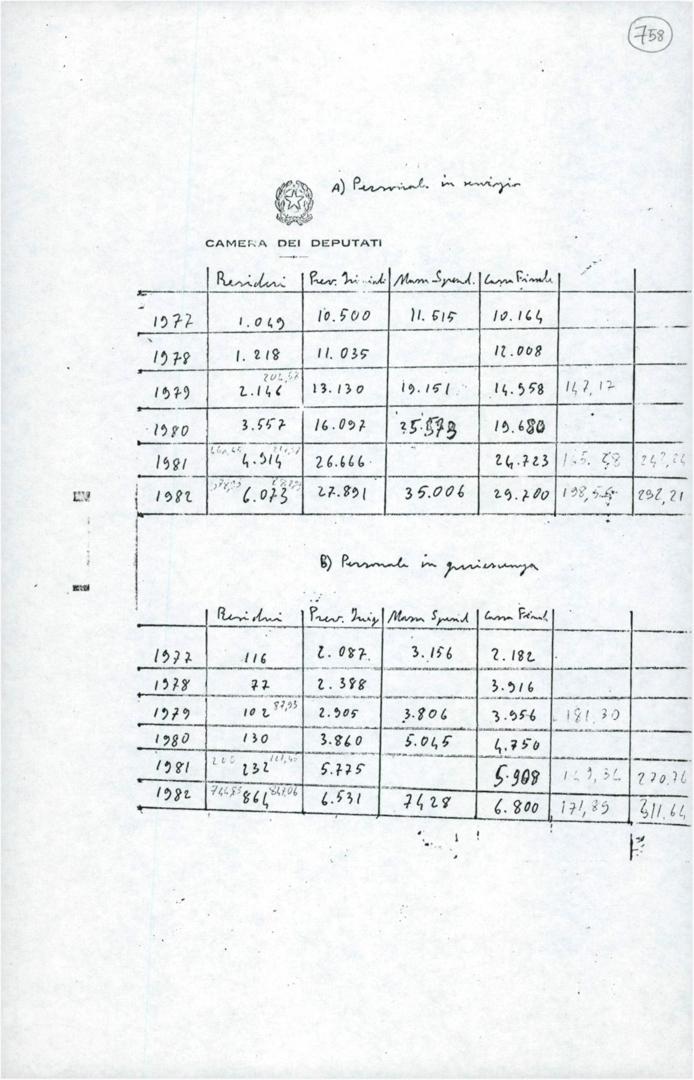 758
A) Personale in servizio
CAMERA DEI DEPUTATI
Residui Prev. Iniziali Massa Spend. Cassa Finale
1977 1.049 10.500 11.515 10.164
1978 1.218 11.035 12.008
202,57
1979 2.146 13.130 19.151 14.958 142,17
1980 3.557 16.097 25.573 19.680
1981 4.914 26.666 24.723 242,24
1982 6.073 27.891 35.006 29.700 198,55 292,21
B) Personale in quiescenza
Residui Prev. Iniz Massa Spend Cassa Final
1977 116 2.087 3.156 2.182
1978 77 2.388 3.916
1979 102 87,93 2.905 3.806 3.956 181,30
1980 130 3.860 5.045 4.750
1981 200 232 5.775 5.908 270,76
1982 744,83 864 6.531 7428 6.800 171,89 311,64